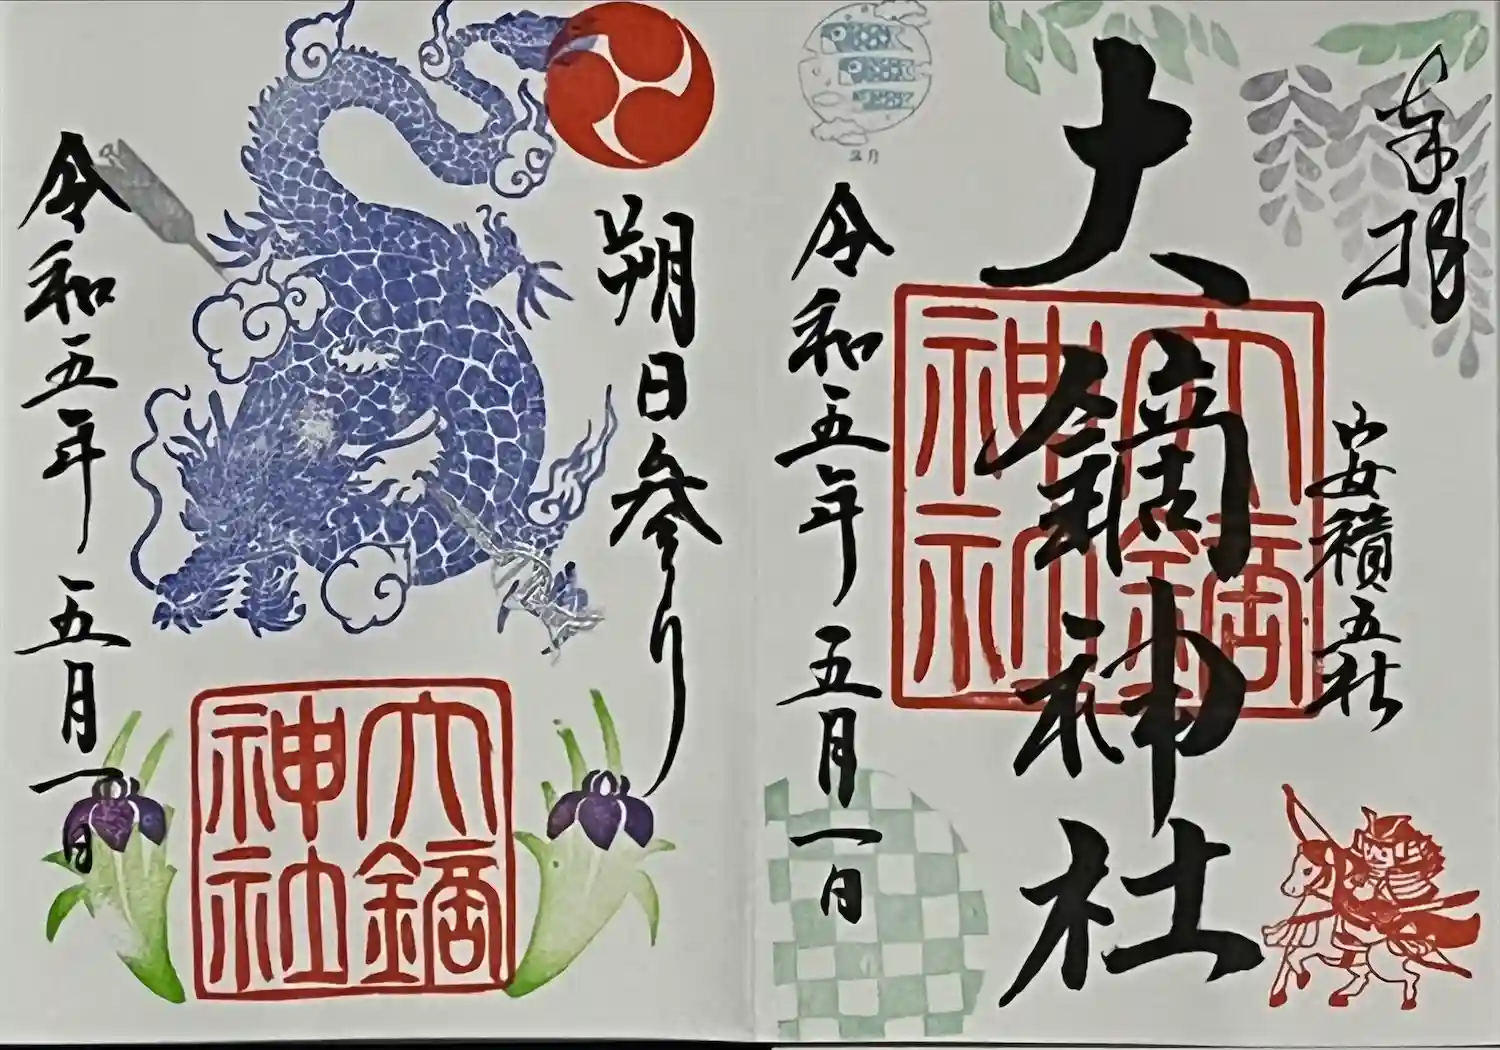 奉拝
安積五社
大鏑神社
大鏑神社
令和五年 五月一日
五月
朔日参り
大鏑神社
令和五年 五月一日